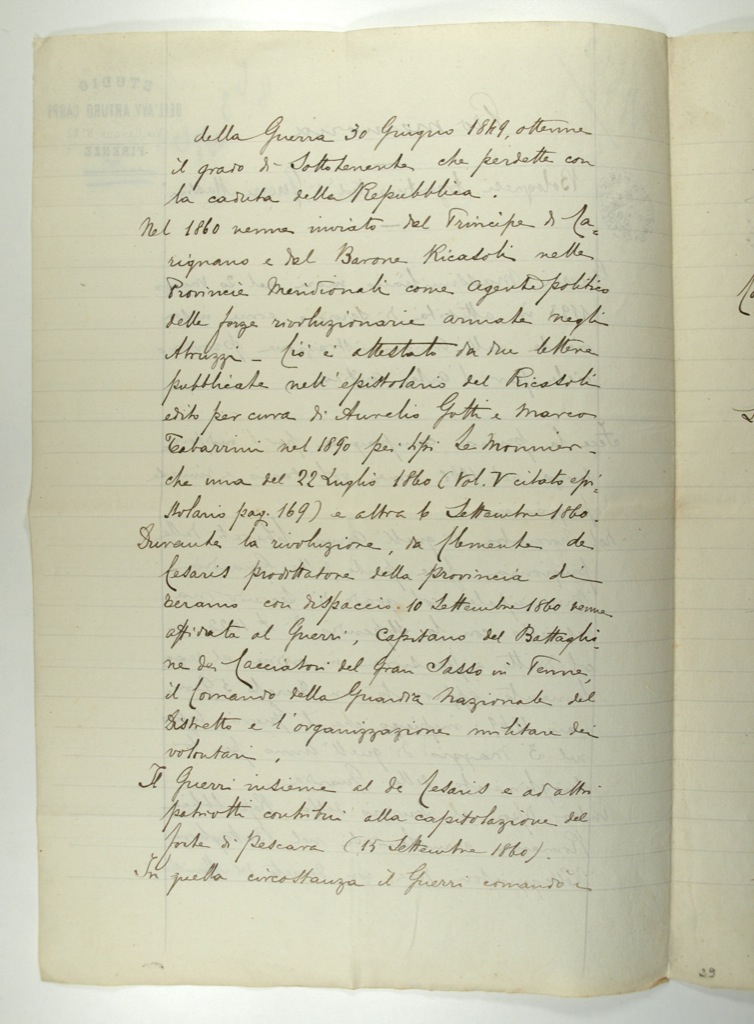 della Guerra 30 Giugno 1849, ottenne
il grado di Sottotenente che perdette con
la caduta della Repubblica.
Nel 1860 venne inviato dal Principe di Ca-
rignano e dal Barone Ricasoli nelle
Provincie Meridionali come agente politico
delle forze rivoluzionarie armate negli
Abruzzi – Ciò è attestato da due lettere
pubblicate nell'epistolario del Ricasoli
edito per cura di Aurelio Gotti e Marco
Tabarrini nel 1890 pei tipi Le Monnier –
che una del 22 Luglio 1860 (Vol. V citato epi-
stolario pag. 169) e altra 6 Settembre 1860.
Durante la rivoluzione, da Clemente de
Cesaris prodittatore della provincia di
Teramo con dispaccio 10 Settembre 1860 venne
affidata al Guerri, Capitano del Battaglio-
ne dei Cacciatori del Gran Sasso in Penne,
il Comando della Guardia Nazionale del
Distretto e l'organizzazione militare dei
volontari.
Il Guerri insieme al de Cesaris e ad altri
patriotti contribuì alla capitolazione del
forte di Pescara (15 Settembre 1860).
In quella circostanza il Guerri comandò
STUDIO
DELL'AVV. ARTURO CARPI
FIRENZE
29